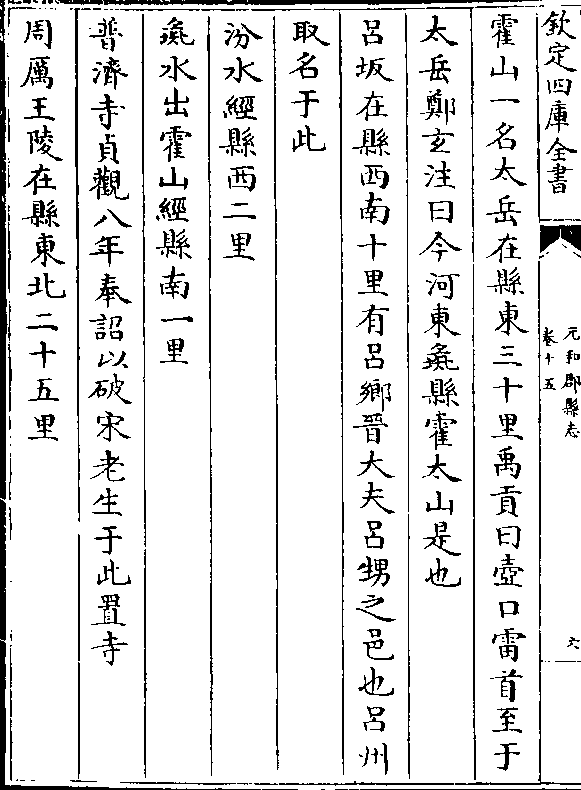 欽定四庫全書
元和郡縣志
卷十五
六
霍山一名太岳在縣東三十里禹貢曰壺口雷首至于
太岳鄭玄注曰今河東彘縣霍太山是也
呂坂在縣西南十里有呂鄉晉大夫呂甥之邑也呂州
取名于此
汾水經縣西二里
彘水出霍山經縣南一里
普濟寺貞觀八年奉詔以破宋老生于此置寺
周厲王陵在縣東北二十五里